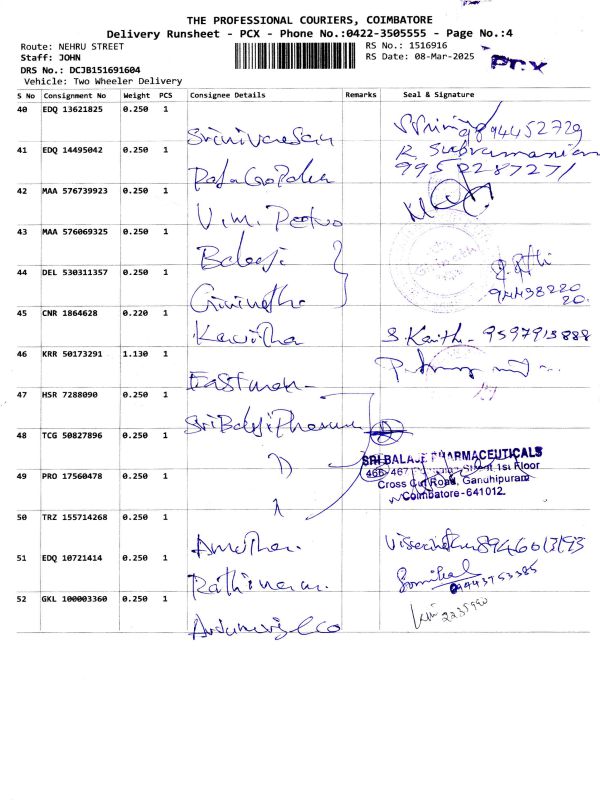 THE PROFESSIONAL COURIERS, COIMBATORE
Delivery Runsheet - PCX - Phone No.:0422-3505555 - Page No.:4
Route: NEHRU STREET
RS No.: 1516916
Staff: JOHN
RS Date: 08-Mar-2025
PCX
DRS No.: DCJB151691604
Vehicle: Two Wheeler Delivery
S No Consignment No Weight PCS Consignee Details Remarks Seal & Signature
40 EDQ 13621825 0.250 1 Srinivasan 9445272g
41 EDQ 14495042 0.250 1 R. Subramanian
9952287271
42 MAA 576739923 0.250 1 V.M.
43 MAA 576069325 0.250 1 Balaji
44 DEL 530311357 0.250 1
9449822020.
45 CNR 1864628 0.220 1 Kavitha S. 9597915888
46 KRR 50173291 1.130 1 Eastman
47 HSR 7288090 0.250 1 Sri Balaji Pharma
48 TCG 50827896 0.250 1 D
SRI BALAJI PHARMACEUTICALS
466/467 Street 1st Floor
49 PRO 17560478 0.250 1
Cross Cut Road, Gandhipuram
Coimbatore-641012.
50 TRZ 155714268 0.250 1
51 EDQ 10721414 0.250 1 Rathinam
09443753385
52 GKL 100003360 0.250 1 2235990